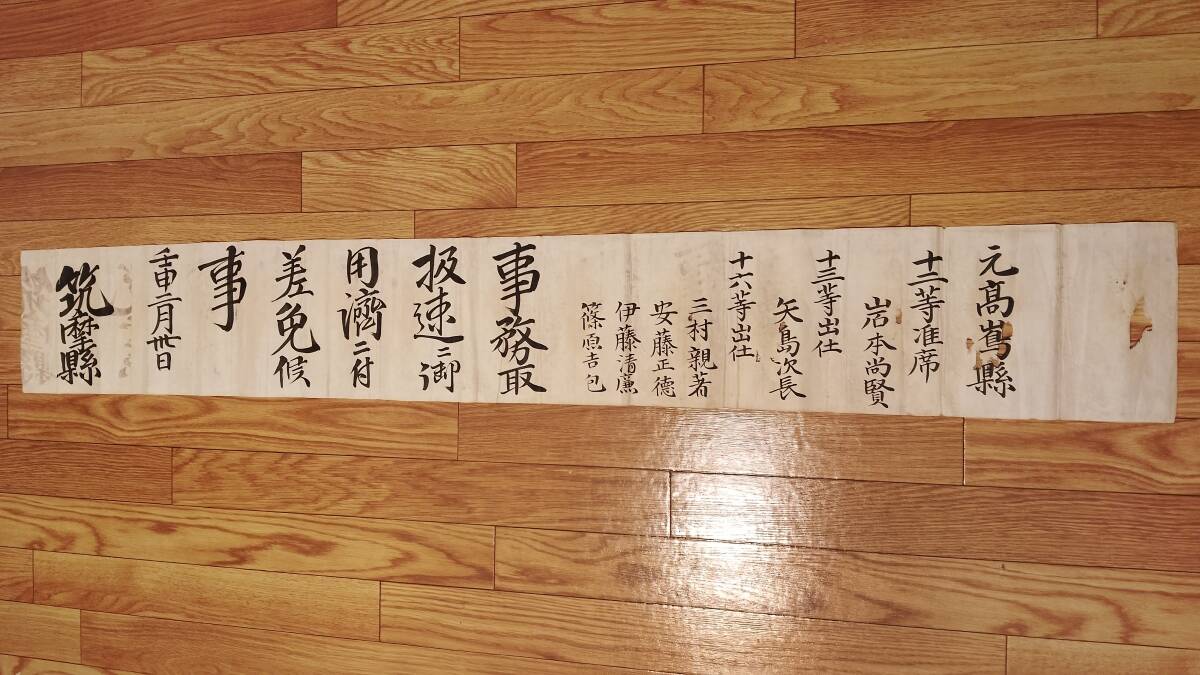 元高嶌縣
十二等准席
岩本尚賢
十三等出仕
矢島次長
十六等出仕
三村親著
安藤正德
伊藤清薫
篠原吉包
事務取
扱速ニ御
用濟ニ付
差免候
事
壬申二月卅日
筑摩縣